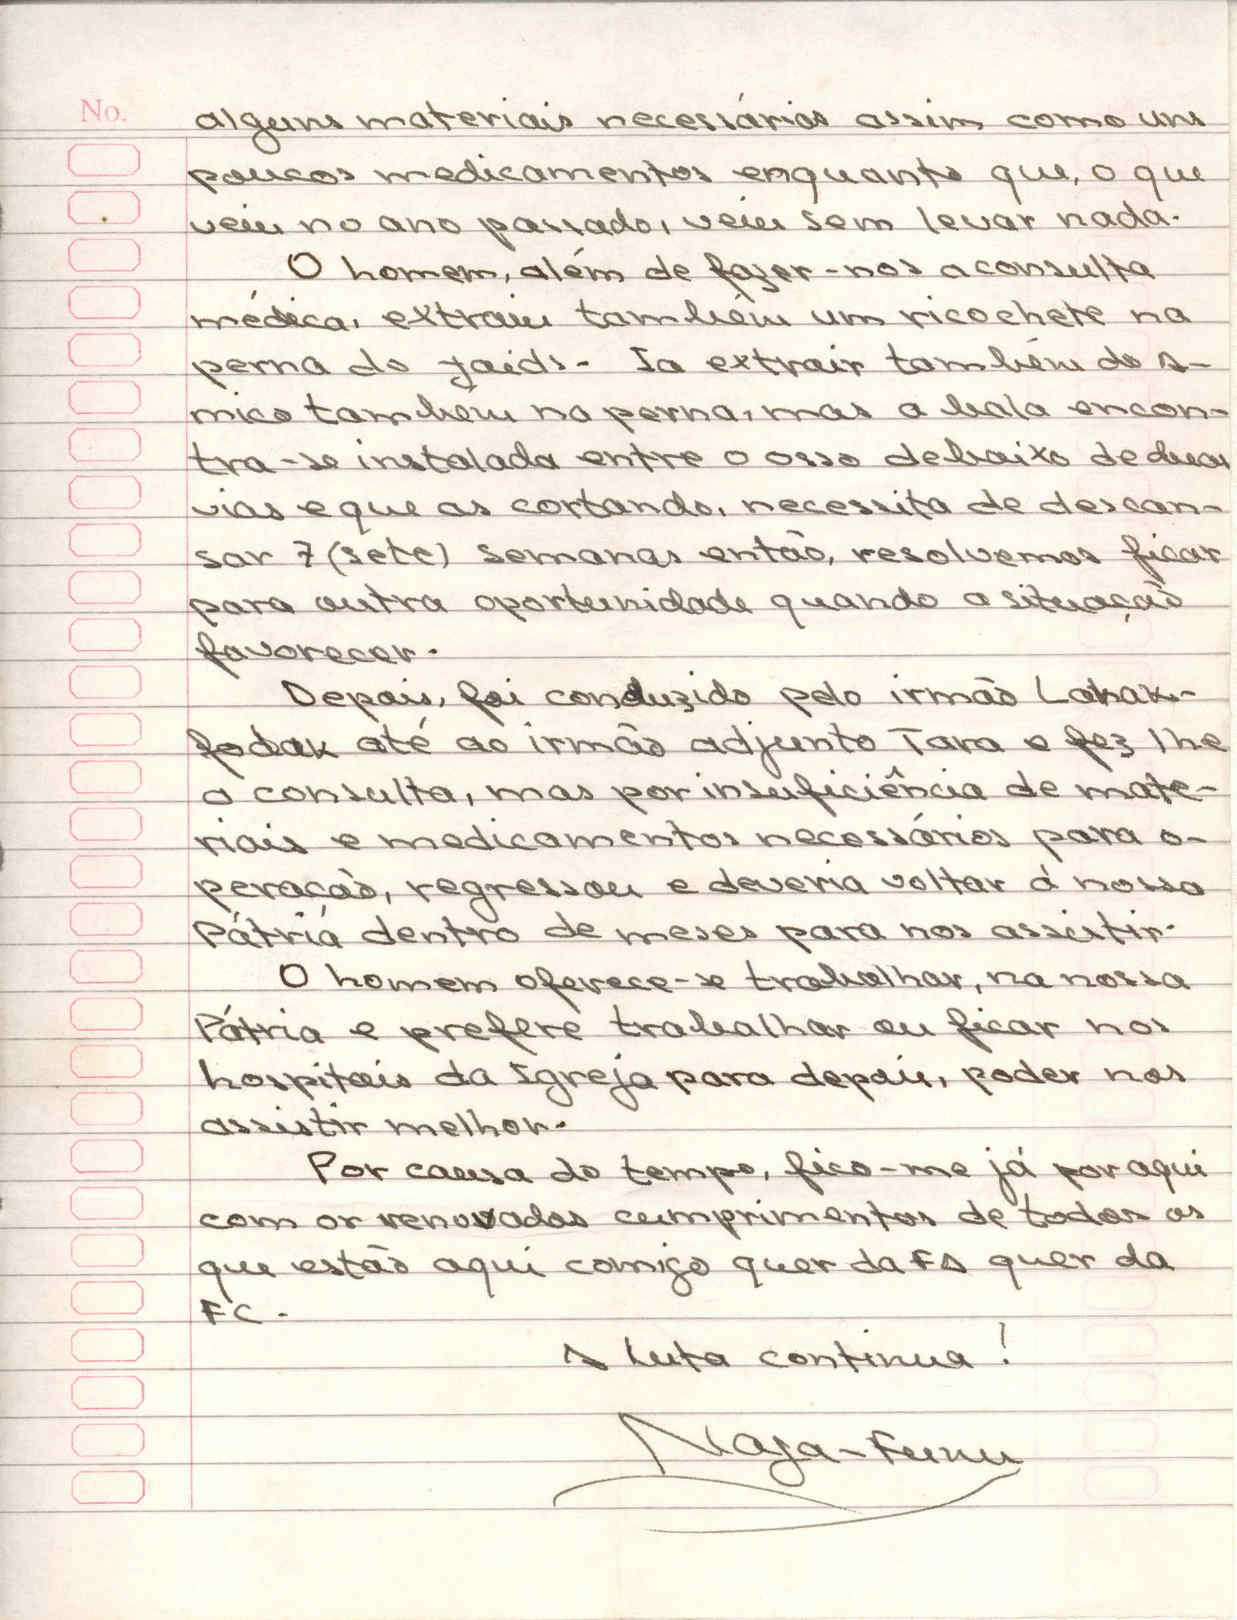 No. alguns materiais necessários assim como uns
poucos medicamentos enquanto que, o que
veiu no ano passado, veiu sem levar nada.
O homem, além de fazer-nos a consulta
médica, extraiu tambêm um ricochete na
perna do Jaids. Ia extrair tambêm do A-
mico tambêm na perna, mas a bala encon-
tra-se instalada entre o osso debaixo de duas
vias e que as cortando, necessita de descan-
sar 7 (sete) semanas então, resolvemos ficar
para outra oportunidade quando a situação
favorecer.
Depois, foi conduzido pelo irmão Lakak-
fodak até ao irmão adjunto Tara e fez lhe
a consulta, mas por insuficiência de mate-
riais e medicamentos necessários para o-
peração, regressou e deveria voltar á nossa
Pátria dentro de meses para nos assistir.
O homem oferece-se trabalhar, na nossa
Pátria e prefere trabalhar ou ficar nos
hospitais da Igreja para depois, poder nos
assistir melhor.
Por causa do tempo, fico-me já por aqui
com os renovados cumprimentos de todos os
que estão aqui comigo quer da FA quer da
FC.
A Luta continua!